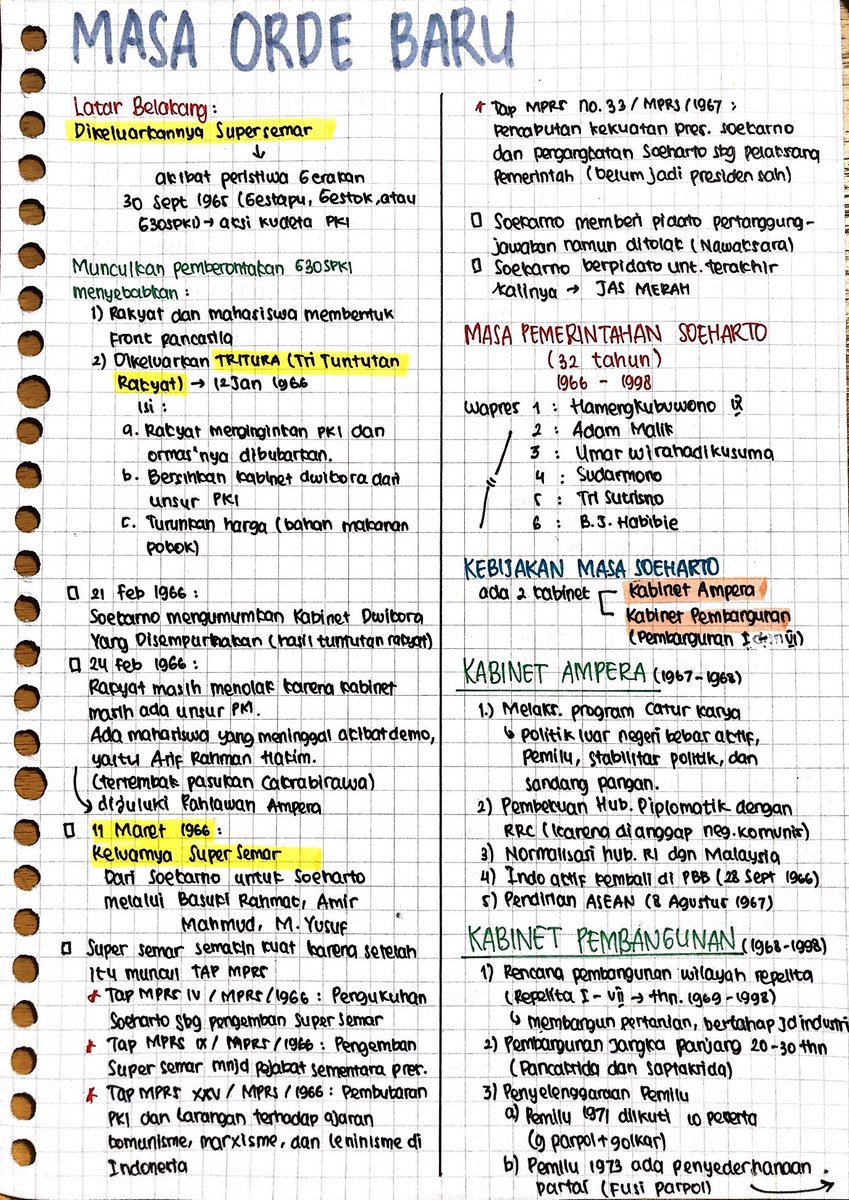 MASA ORDE BARU
Latar Belakang :
Dikeluarkannya Supersemar
↓
akibat peristiwa Gerakan
30 Sept 1965 (Gestapu, Gestok, atau
G30SPKI) → aksi kudeta PKI
Munculkan pemberontakan G30SPKI
menyebabkan :
1) Rakyat dan mahasiswa membentuk
Front pancasila
2) Dikeluarkan TRITURA (Tri Tuntutan
Rakyat) → 12 Jan 1966
Isi :
a. Rakyat menginginkan PKI dan
ormas"nya dibubarkan.
b. Bersihkan kabinet dwikora dari
unsur PKI
c. Turunkan harga (bahan makanan
pokok)
21 Feb 1966 :
Soekarno mengumumkan Kabinet Dwikora
Yang Disempurnakan (hasil tuntutan rakyat)
24 Feb 1966 :
Rakyat masih menolak karena kabinet
masih ada unsur PKI.
Ada mahasiswa yang meninggal akibat demo,
yaitu Arif Rahman Hakim.
(tertembak pasukan Cakrabirawa)
↳ dijuluki Pahlawan Ampera
11 Maret 1966 :
Keluarnya Super Semar
Dari Soekarno untuk Soeharto
melalui Basuki Rahmat, Amir
Mahmud, M. Yusuf
Super semar semakin kuat karena setelah
itu muncul TAP MPRS
* Tap MPRS IV / MPRS / 1966 : Pengukuhan
Soeharto sbg pengemban Super Semar
* Tap MPRS IX / MPRS / 1966 : Pengemban
Super semar mnjd pejabat sementara pres.
* Tap MPRS XXV / MPRS / 1966 : Pembubaran
PKI dan larangan terhadap ajaran
komunisme, marxisme, dan leninisme di
Indonesia
* Tap MPRS no. 33 / MPRS / 1967 :
Pencabutan kekuatan pres. soekarno
dan pengangkatan Soeharto sbg pelaksana
Pemerintah (belum jadi presiden sah)
Soekarno memberi pidato pertanggung-
jawaban namun ditolak (Nawaksara)
Soekarno berpidato unt. terakhir
kalinya → JAS MERAH
MASA PEMERINTAHAN SOEHARTO
(32 tahun)
1966 - 1998
Wapres 1 : Hamengkubuwono IX
2 : Adam Malik
3 : Umar wirahadikusuma
4 : Sudarmono
5 : Tri Sutrisno
6 : B.J. Habibie
KEBIJAKAN MASA SOEHARTO
ada 2 kabinet
Kabinet Ampera
Kabinet Pembangunan
(Pembangunan I VII)
KABINET AMPERA (1967-1968)
1.) Melaks. program catur karya
↳ politik luar negeri bebas aktif,
pemilu, stabilitas politik, dan
sandang pangan.
2) Pembekuan Hub. Diplomatik dengan
RRC (karena dianggap neg. komunis)
3) Normalisasi hub. RI dgn Malaysia
4) Indo aktif kembali di PBB (28 Sept 1966)
5) Pendirian ASEAN (8 Agustus 1967)
KABINET PEMBANGUNAN (1968-1998)
1) Rencana pembangunan wilayah repelita
(Repelita I - VII → thn. 1969 - 1998)
↳ membangun pertanian, bertahap jd industri
2) Pembangunan Jangka panjang 20-30 thn
(Pancakrida dan Saptakrida)
3) Penyelenggaraan Pemilu
a) Pemilu 1971 diikuti 10 peserta
(9 parpol + golkar)
b) Pemilu 1973 ada penyederhanaan
partai (Fusi parpol) →